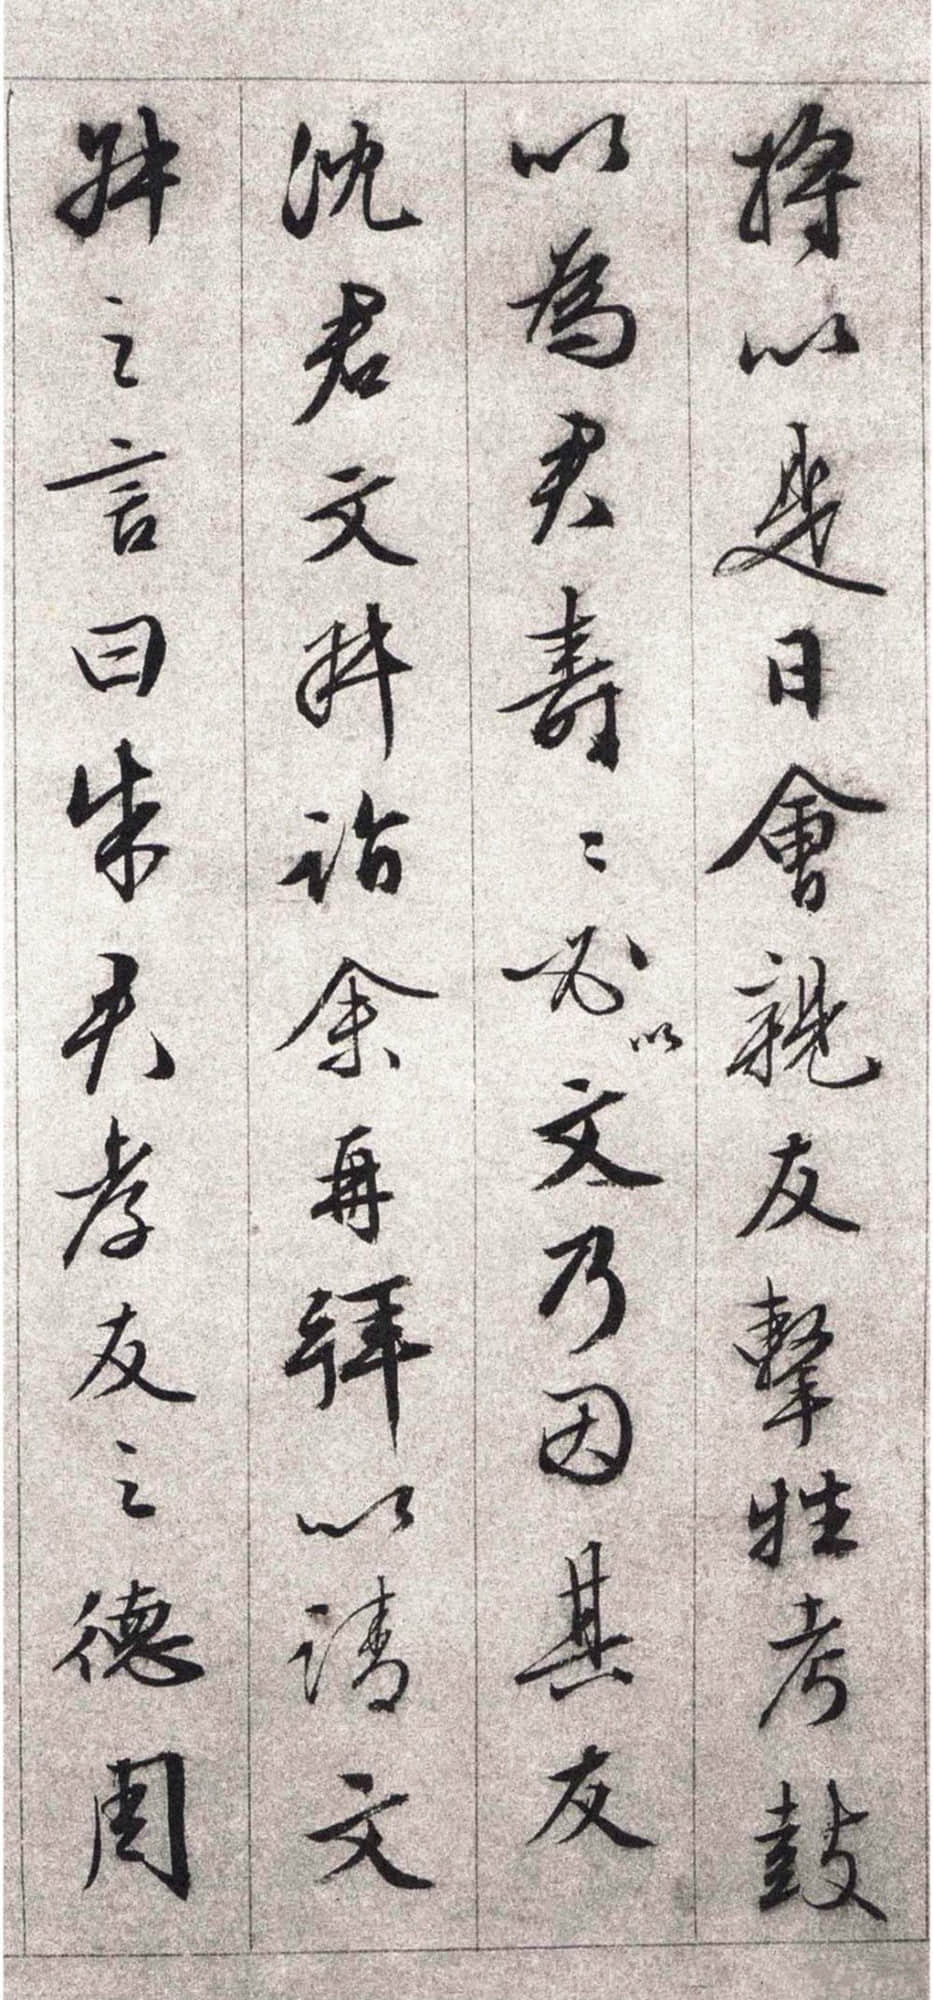 将以是日會親友擊牲考鼓
以為君壽〻必以文乃因其友
沈君文升詣余再拜以請文
升之言曰朱君孝友之德周